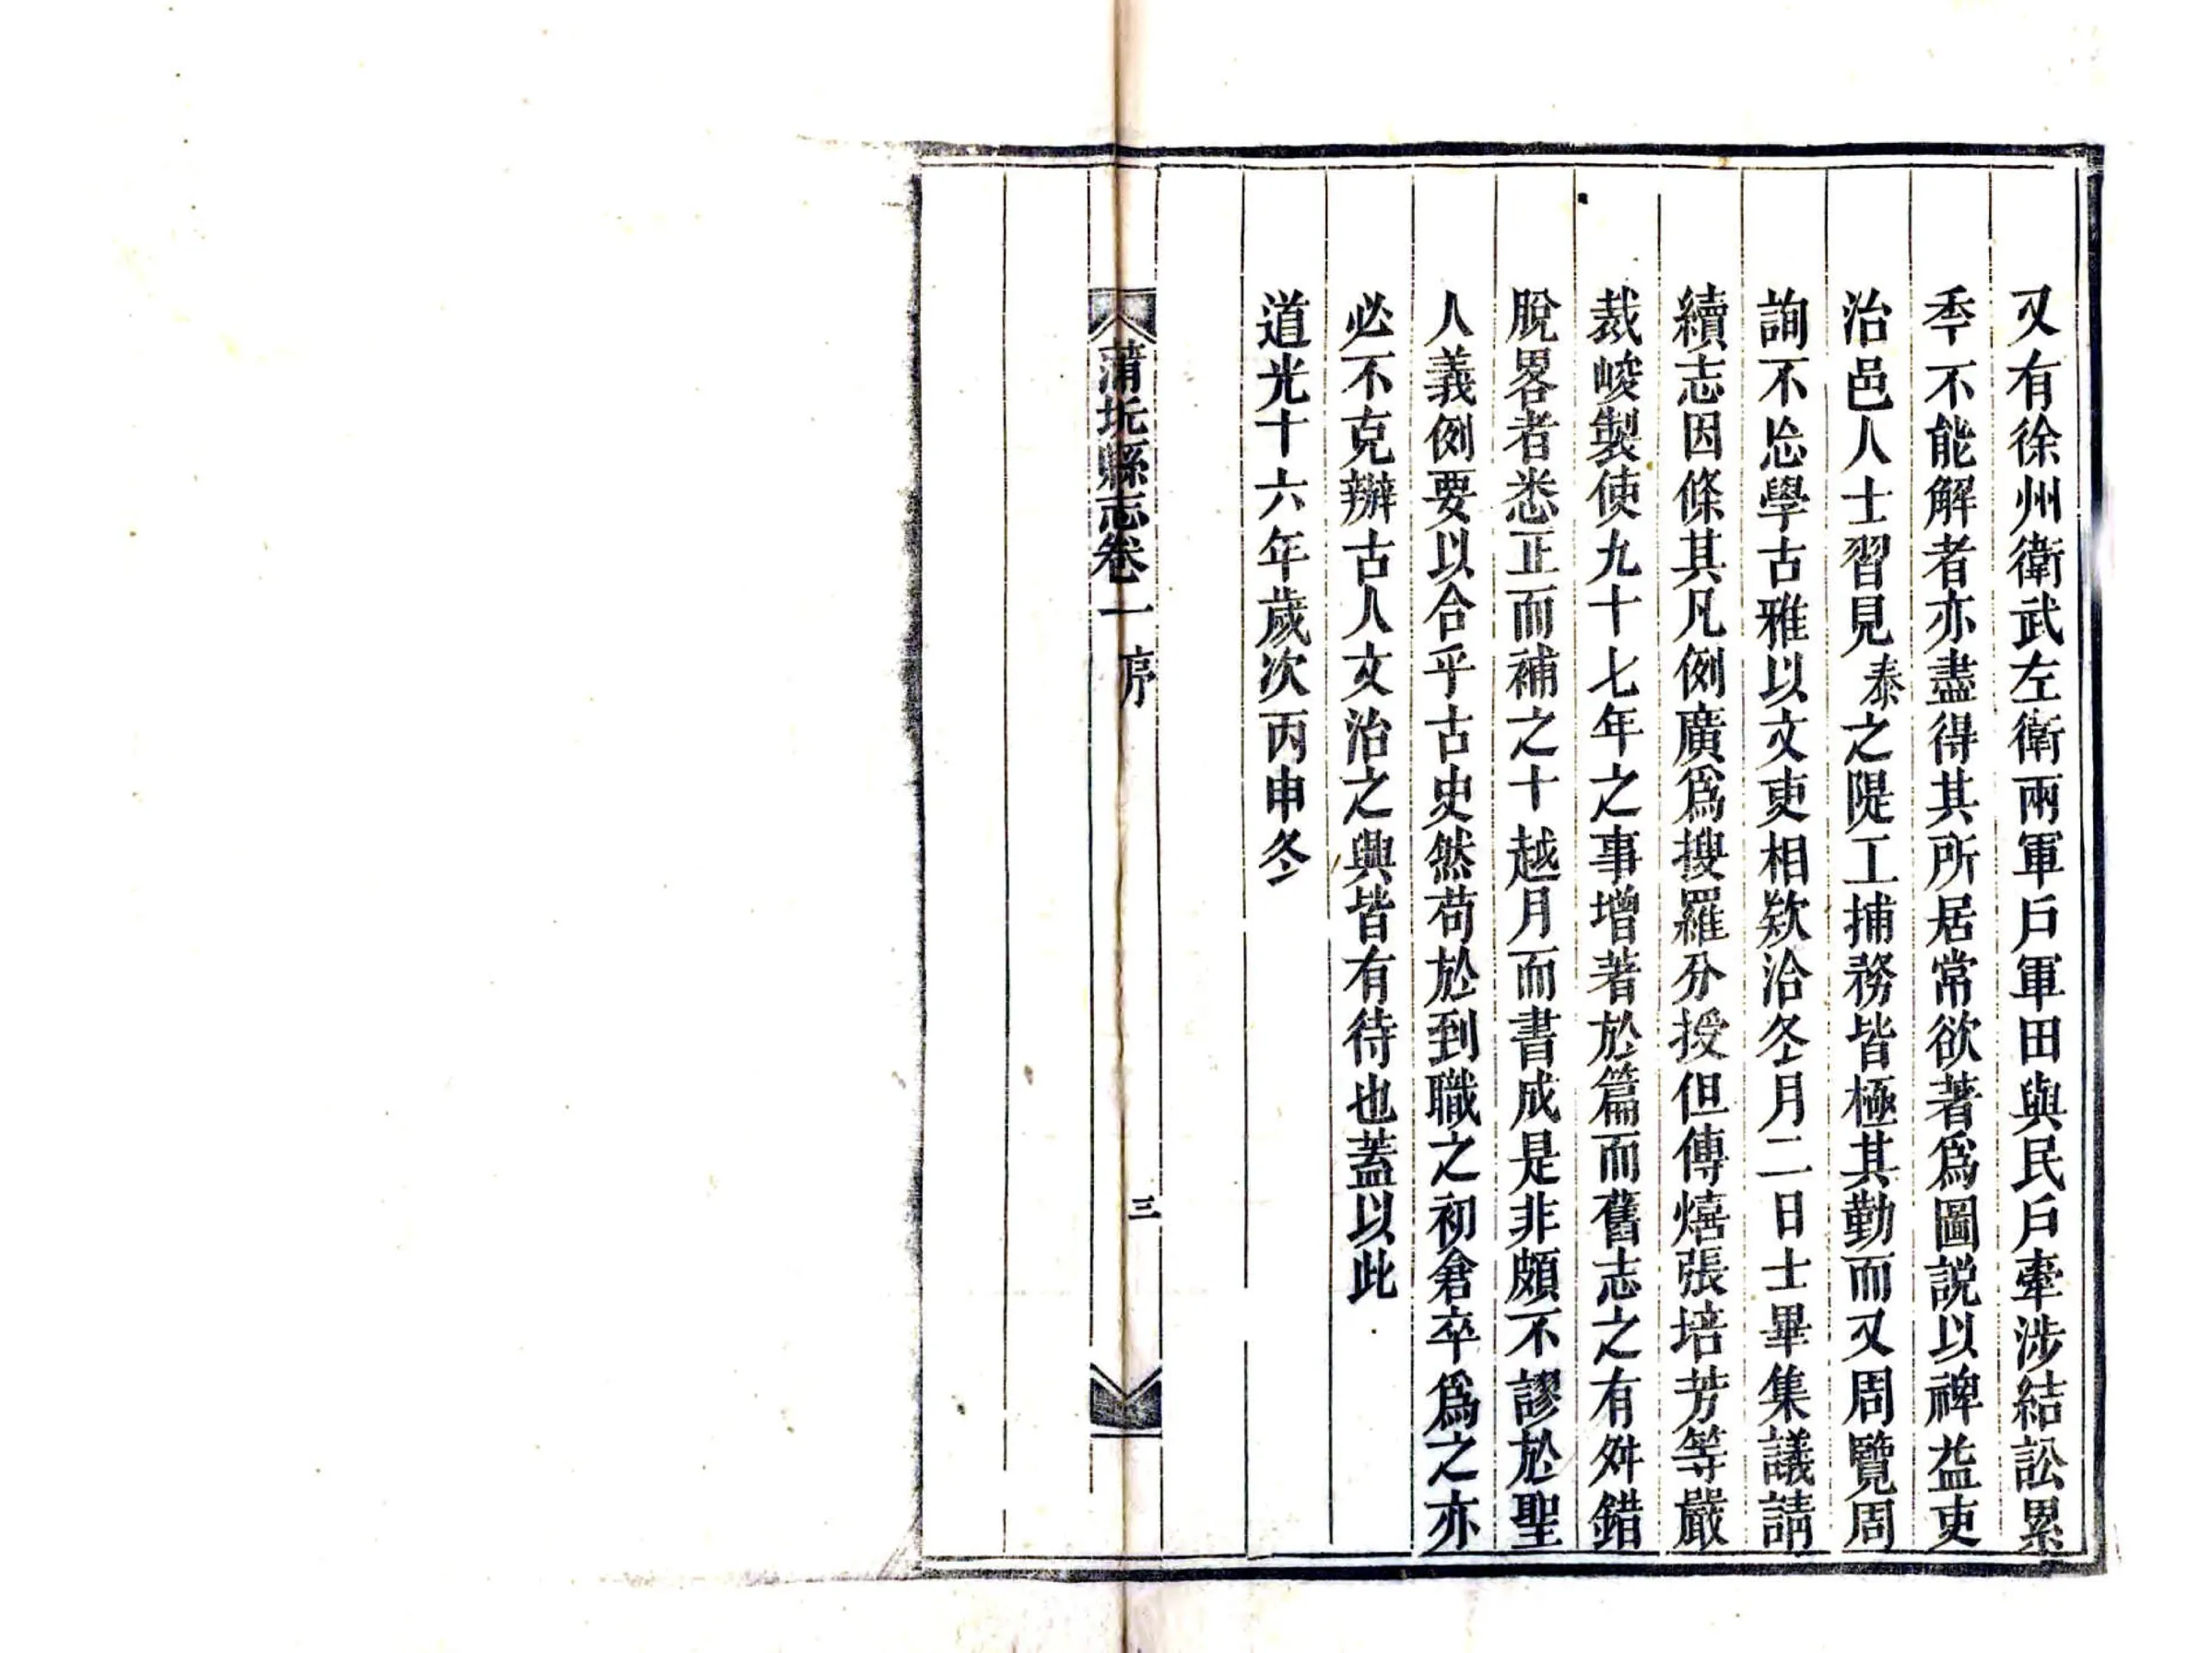 又有徐州衛武左衛兩軍戶軍田與民戶牽涉結訟累
秊不能解者亦盡得其所居常欲著爲圖説以裨益吏
治邑人士習見泰之隄工捕務皆極其勤而又周覽周
詢不怠學古雅以文吏相欵洽冬月二日士畢集議請
續志因條其凡例廣爲搜羅分授但傳熺張培芳等嚴
裁峻製使九十七年之事增著於篇而舊志之有舛錯
脫畧者悉正而補之十越月而書成是非頗不謬於聖
人義例要以合乎古史然苟於到職之初倉卒爲之亦
必不克辦古人文治之興皆有待也蓋以此
道光十六年歲次丙申冬
蒲圻縣志卷一 序 三